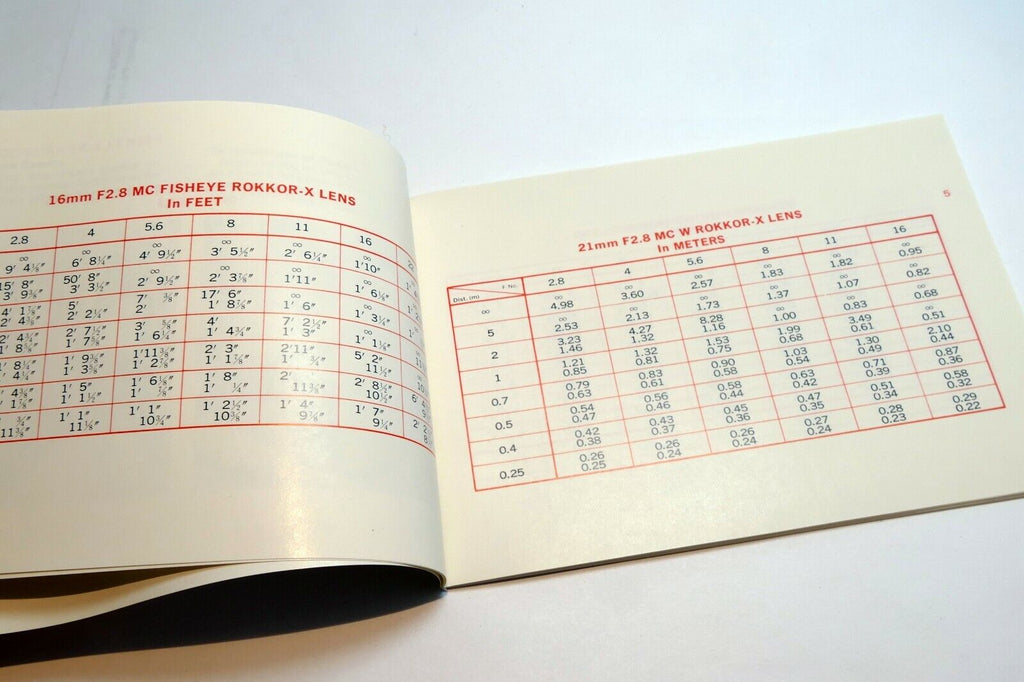 16mm F2.8 MC FISHEYE ROKKOR-X LENS
In FEET
2.8 4 5.6 8 11 16
∞ ∞ ∞ ∞ ∞ ∞
9' 4⅛" 6' 8¼" 4' 9½" 3' 5½" 2' 6¼" 1'10"
15' 8" 50' 8" ∞ ∞ ∞ ∞
3' 9⅜" 3' 3½" 2' 9½" 2' 3⅞" 1'11" 1' 6⅛"
4' 1⅞" 5' 7' ⅜" 17' 6" ∞ ∞
2' 4¾" 2' 2¼" 2' 1' 8⅞" 1' 6" 1' 3¼"
2' 4¾" 2' 7½" 3' ⅝" 4' 7' 2½" ∞
1' 8⅝" 1' 6¼" 1' 4¾" 1' 3" 1' 1⅛"
1' 8¼" 1' 9⅜" 1'11⅜" 2' 3" 2'11" 5' 2"
1' 4¼" 1' 3⅝" 1' 2⅞" 1' 1⅞" 1' ¾" 11½"
1' 5" 1' 6⅛" 1' 8" 2' 2' 8½"
1' 1½" 1' ⅞" 1' ¼" 11¾" 10½"
1' 1" 1' 1" 1' 2½" 1' 4" 1' 7"
11⅜" 11⅛" 10¾" 10⅜" 9⅞" 9¼"
5
21mm F2.8 MC W ROKKOR-X LENS
In METERS
F No. 2.8 4 5.6 8 11 16
Dist. (m)
∞ ∞ ∞ ∞ ∞ ∞ ∞
4.98 3.60 2.57 1.83 1.82 0.95
5 ∞ ∞ ∞ ∞ ∞ ∞
2.53 2.13 1.73 1.37 1.07 0.82
2 3.23 4.27 8.28 ∞ ∞ ∞
1.46 1.32 1.16 1.00 0.83 0.68
1 1.21 1.32 1.53 1.99 3.49 ∞
0.85 0.81 0.75 0.68 0.61 0.51
0.7 0.79 0.83 0.90 1.03 1.30 2.10
0.63 0.61 0.58 0.54 0.49 0.44
0.5 0.54 0.56 0.58 0.63 0.71 0.87
0.47 0.46 0.44 0.42 0.39 0.36
0.4 0.42 0.43 0.45 0.47 0.51 0.58
0.38 0.37 0.36 0.35 0.34 0.32
0.25 0.26 0.26 0.26 0.27 0.28 0.29
0.25 0.24 0.24 0.24 0.23 0.22